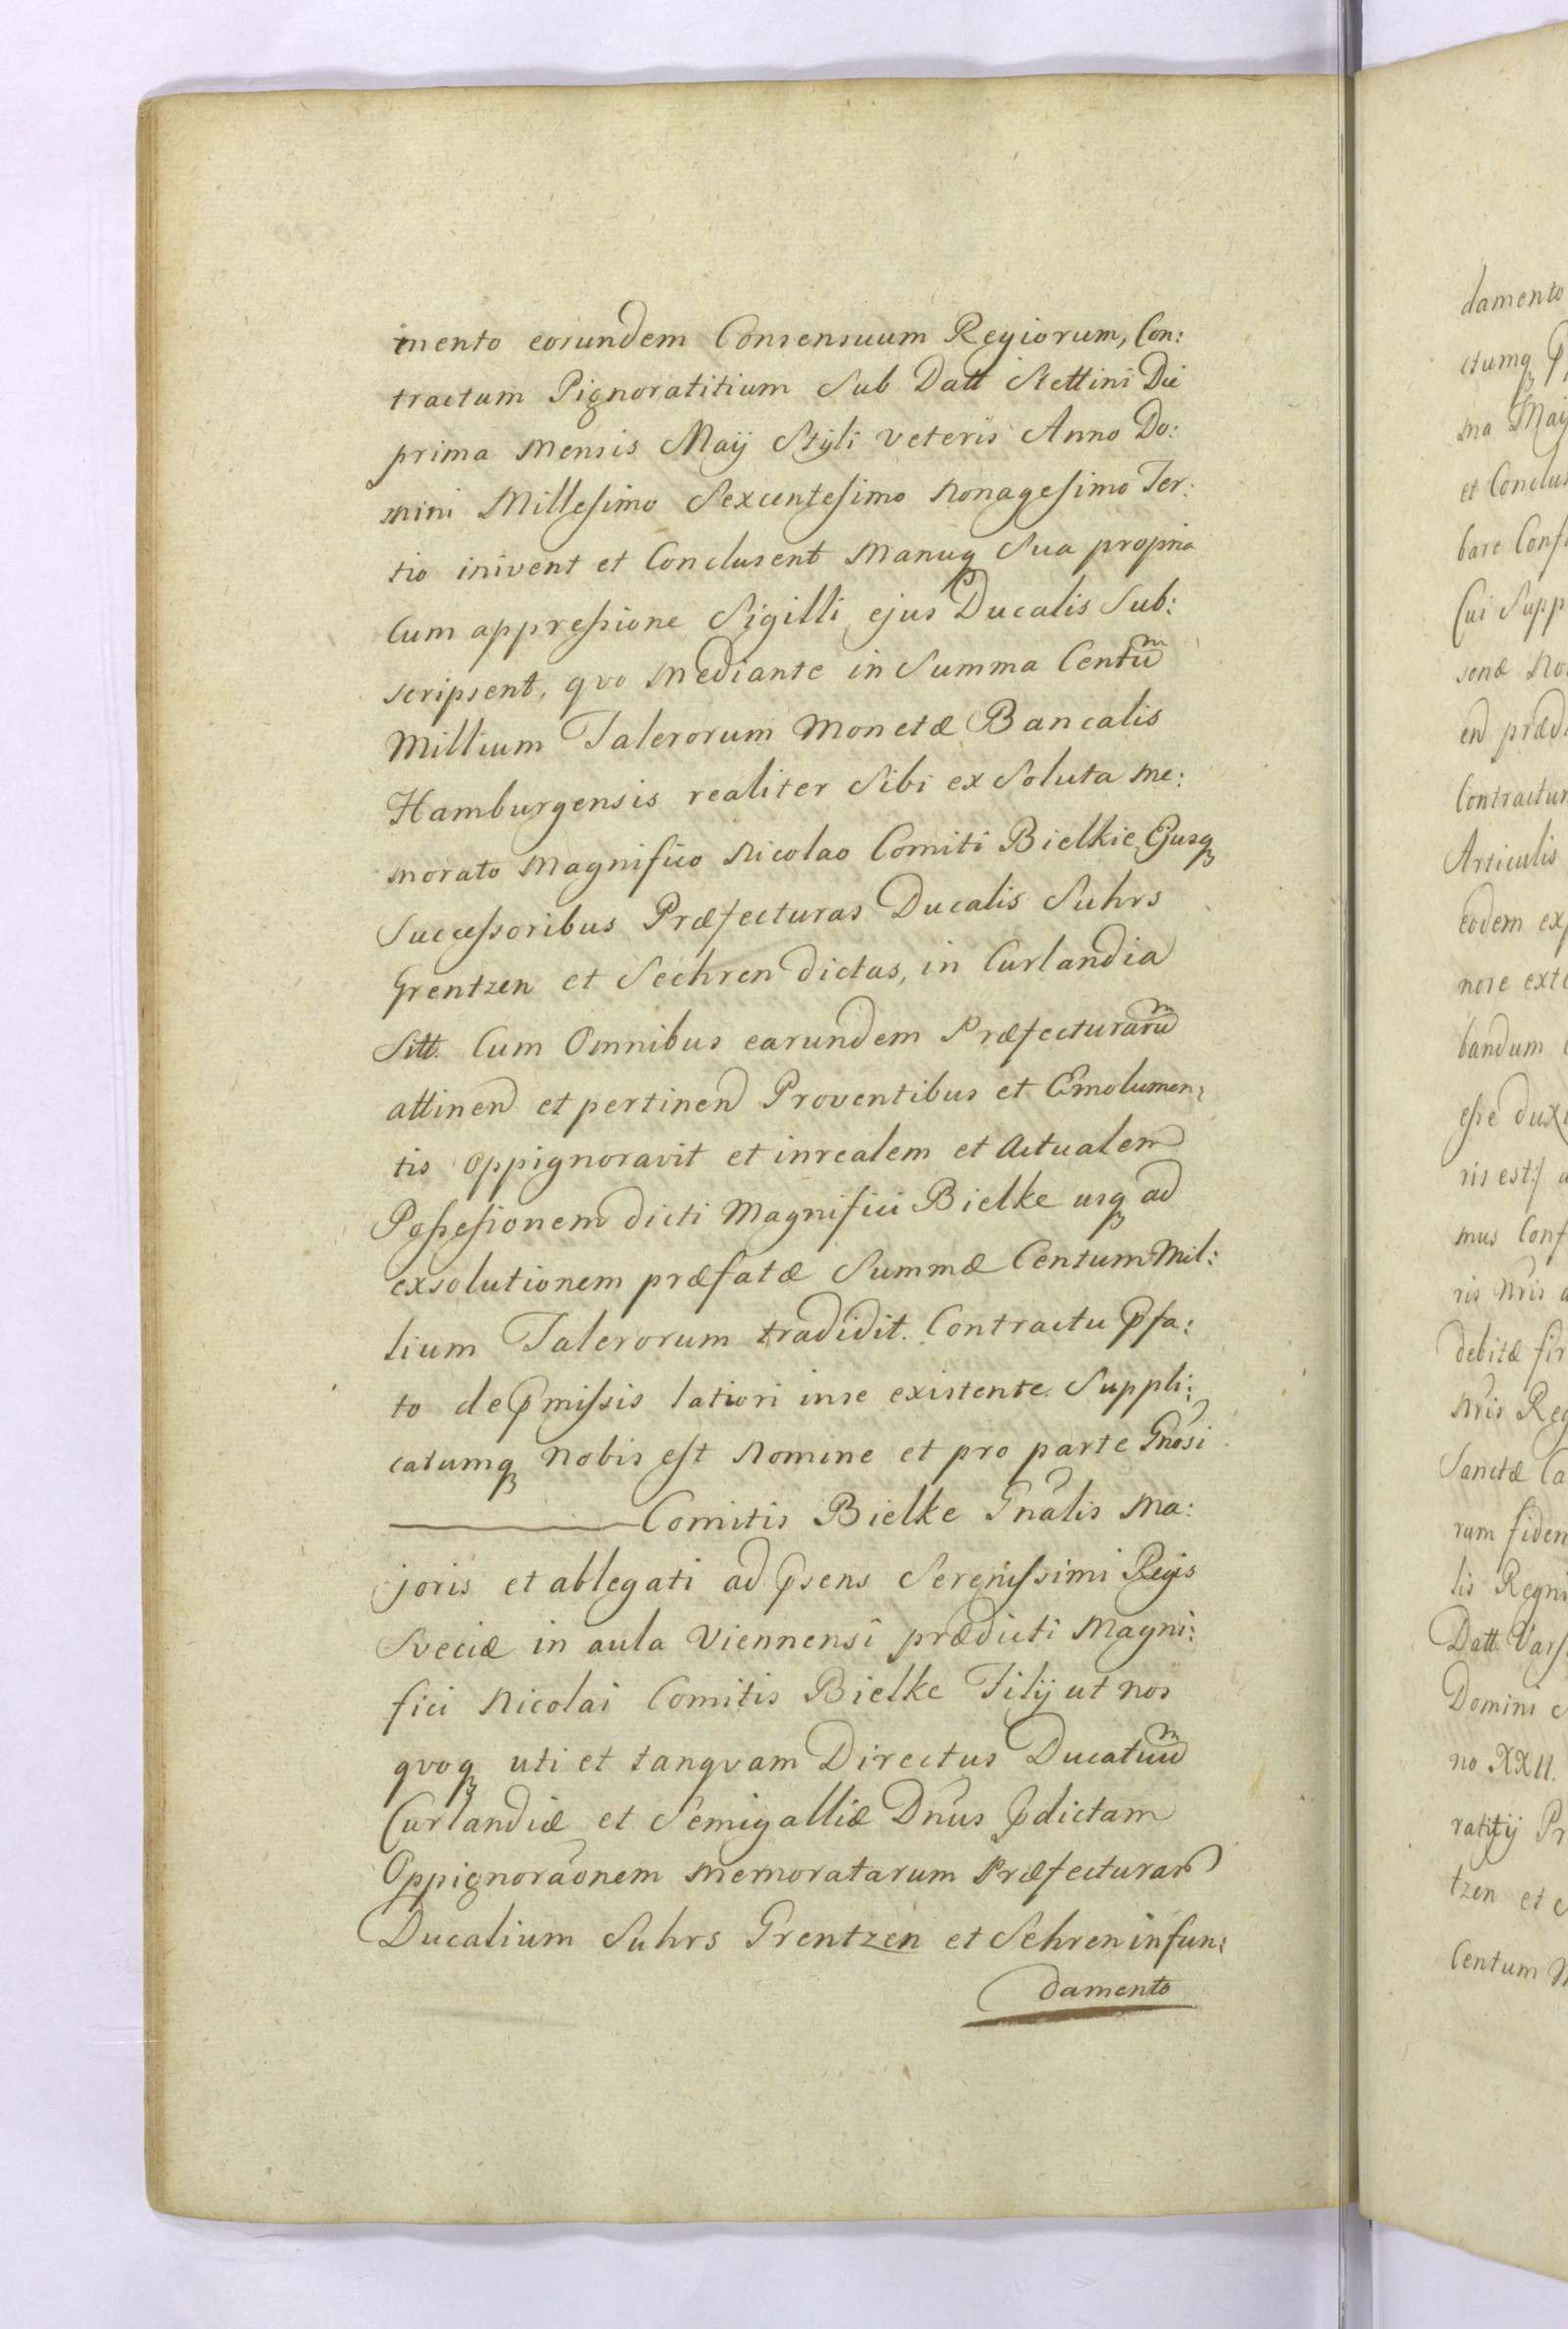 mento eorundem Consensuum Regiorum, Con:
tractum Pignoratitium Sub Datt Stettini Die
prima Mensis Maij Stÿli veteris Anno Do:
mini Millesimo Sexcentesimo Nonagesimo Ter:
tio inivent et Conclusent Manuq Sua propria
Cum appressione Sigilli ejus Ducalis Sub:
scripsent, qvo Mediante in Summa Centũ
Millium Talerorum Monetæ Bancalis
Hamburgensis realiter Sibi ex Soluta me:
morato Magnifico Nicolao Comiti Bielkie, Ejusq
Successoribus Præfecturas Ducalis Suhrs
Grentzen et Seehren dictas, in Curlandia
Sitt. Cum Omnibus earundem Præfecturarũ
attinend et pertinend Proventibus et Emolumen:
tis oppignoravit et inrealem et Actualem
Possesionem dicti Magnifici Bielke usq ad
exsolutionem præfatæ Summæ Centum Mil:
lium Talerorum tradidit. Contractu p̃fa:
to de p̃missis latiori inse existente. Suppli:
catumq Nobis est Nomine et pro parte Gnosi
Comitis Bielke Gnalis Ma:
joris et ablegati ad p̃sens Serenissimi Regis
Sveciæ in aula Viennensi prædicti Magni:
fici Nicolai Comitis Bielke Filij ut nos
qvoq uti et tanqvam Directus Ducatuũ
Curlandiæ et Semigalliæ Dnus p̃dictam
Oppignorãonem Memoratarum Præfecturar
Ducalium Suhrs Grentzen et Sehren in fun:
damento
damento
ctumq
ma Maij
et Conclus
bare Conf
Cui Supp
senæ No
end præd
Contractum
Articulis
eodem exp
nore exte
bandum
esse dux
ris est:/ a
mus Conf
ris Nris a
debitæ fir
Nris Reg
Sanctæ Ca
rum fidem
lis Regni
Datt. Vars
Domini
no XXII.
ratitij Pr
tzen et
Centum M